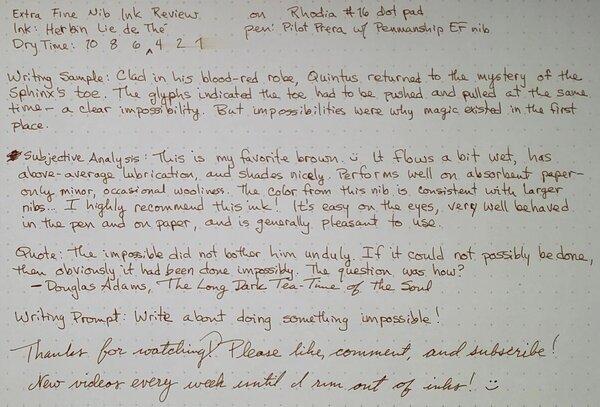 Extra Fine Nib Ink Review on Rhodia #16 dot pad
Ink: Herbin Lie de Thé pen: Pilot Prera w/ Penmanship EF nib
Dry Time: 10 8 6 ^ 4 2 1
Writing Sample: Clad in his blood-red robe, Quintus returned to the mystery of the
Sphinx's toe. The glyphs indicated the toe had to be pushed and pulled at the same
time - a clear impossibility. But impossibilities were why magic existed in the first
place.
Subjective Analysis: This is my favorite brown. :) It flows a bit wet, has
above-average lubrication, and shades nicely. Performs well on absorbent paper-
only minor, occasional wooliness. The color from this nib is consistent with larger
nibs... I highly recommend this ink! It's easy on the eyes, very well behaved
in the pen and on paper, and is generally pleasant to use.
Quote: The impossible did not bother him unduly. If it could not possibly be done,
then obviously it had been done impossibly. The question was how?
- Douglas Adams, The Long Dark Tea-Time of the Soul
Writing Prompt: Write about doing something impossible!
Thanks for watching! Please like, comment, and subscribe!
New videos every week until I run out of inks! :)